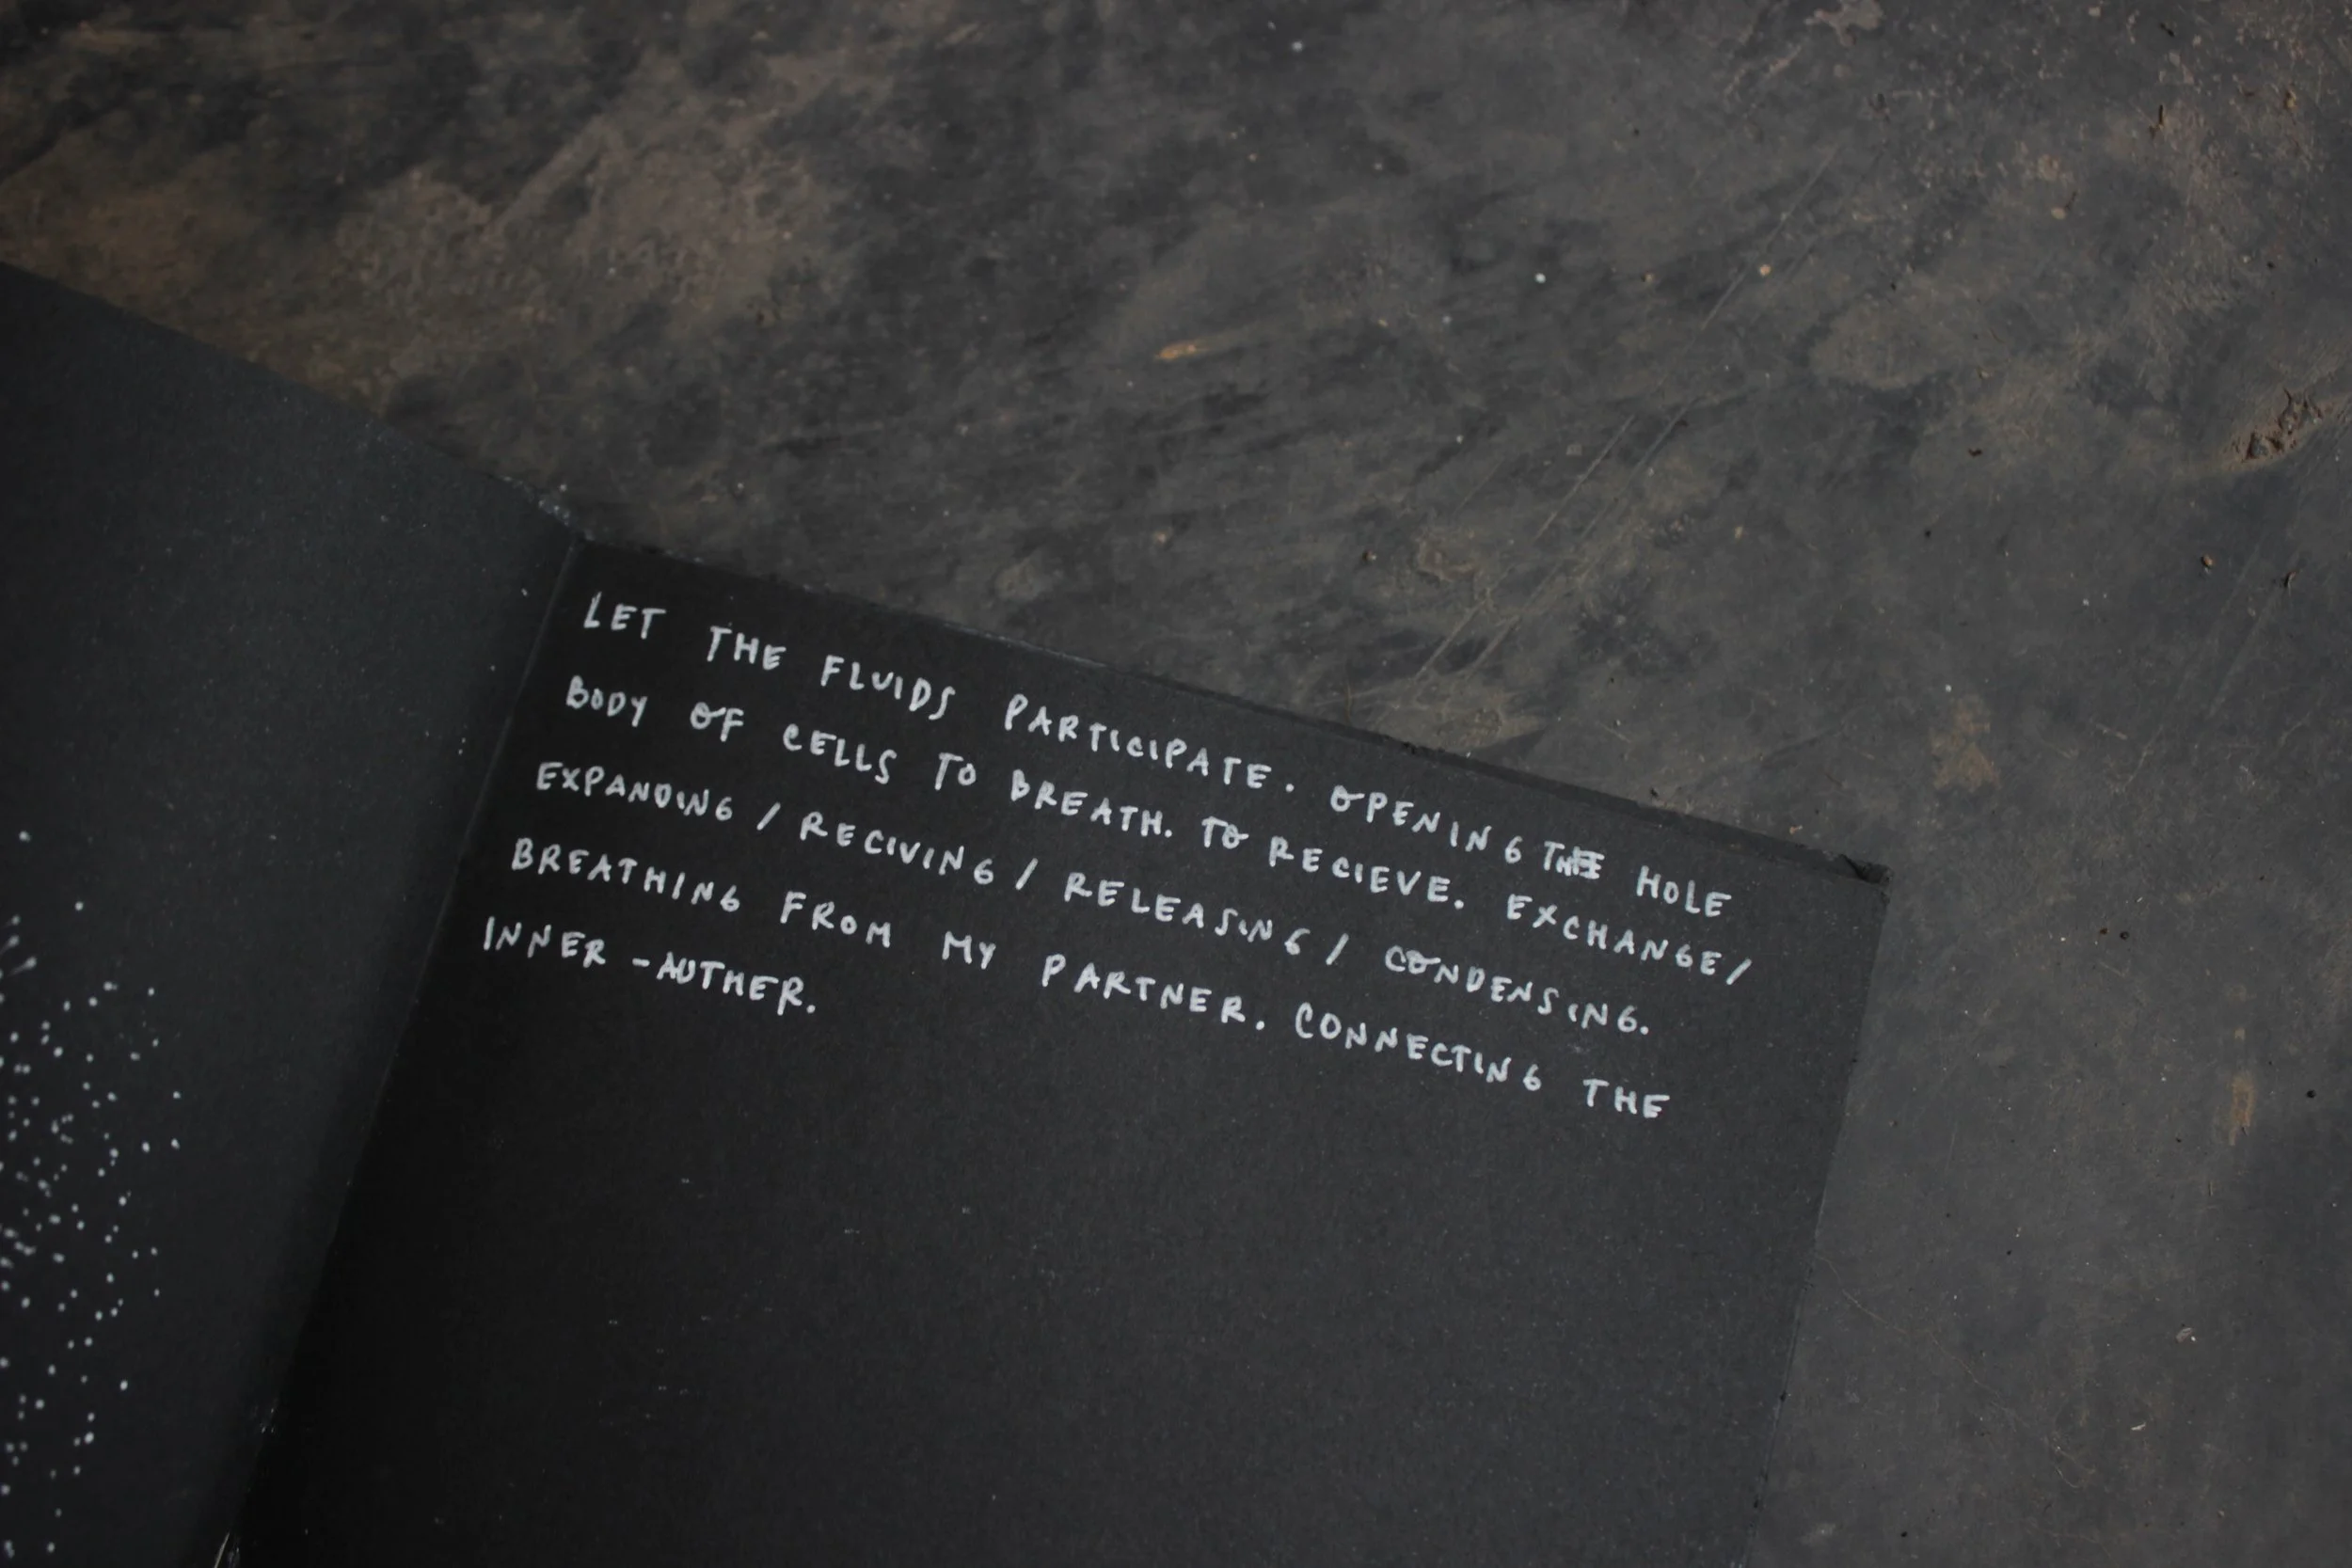 LET THE FLUIDS PARTICIPATE. OPENING THE HOLE
BODY OF CELLS TO BREATH. TO RECIEVE. EXCHANGE/
EXPANDING / RECIVING / RELEASING / CONDENSING.
BREATHING FROM MY PARTNER. CONNECTING THE
INNER -AUTHER.